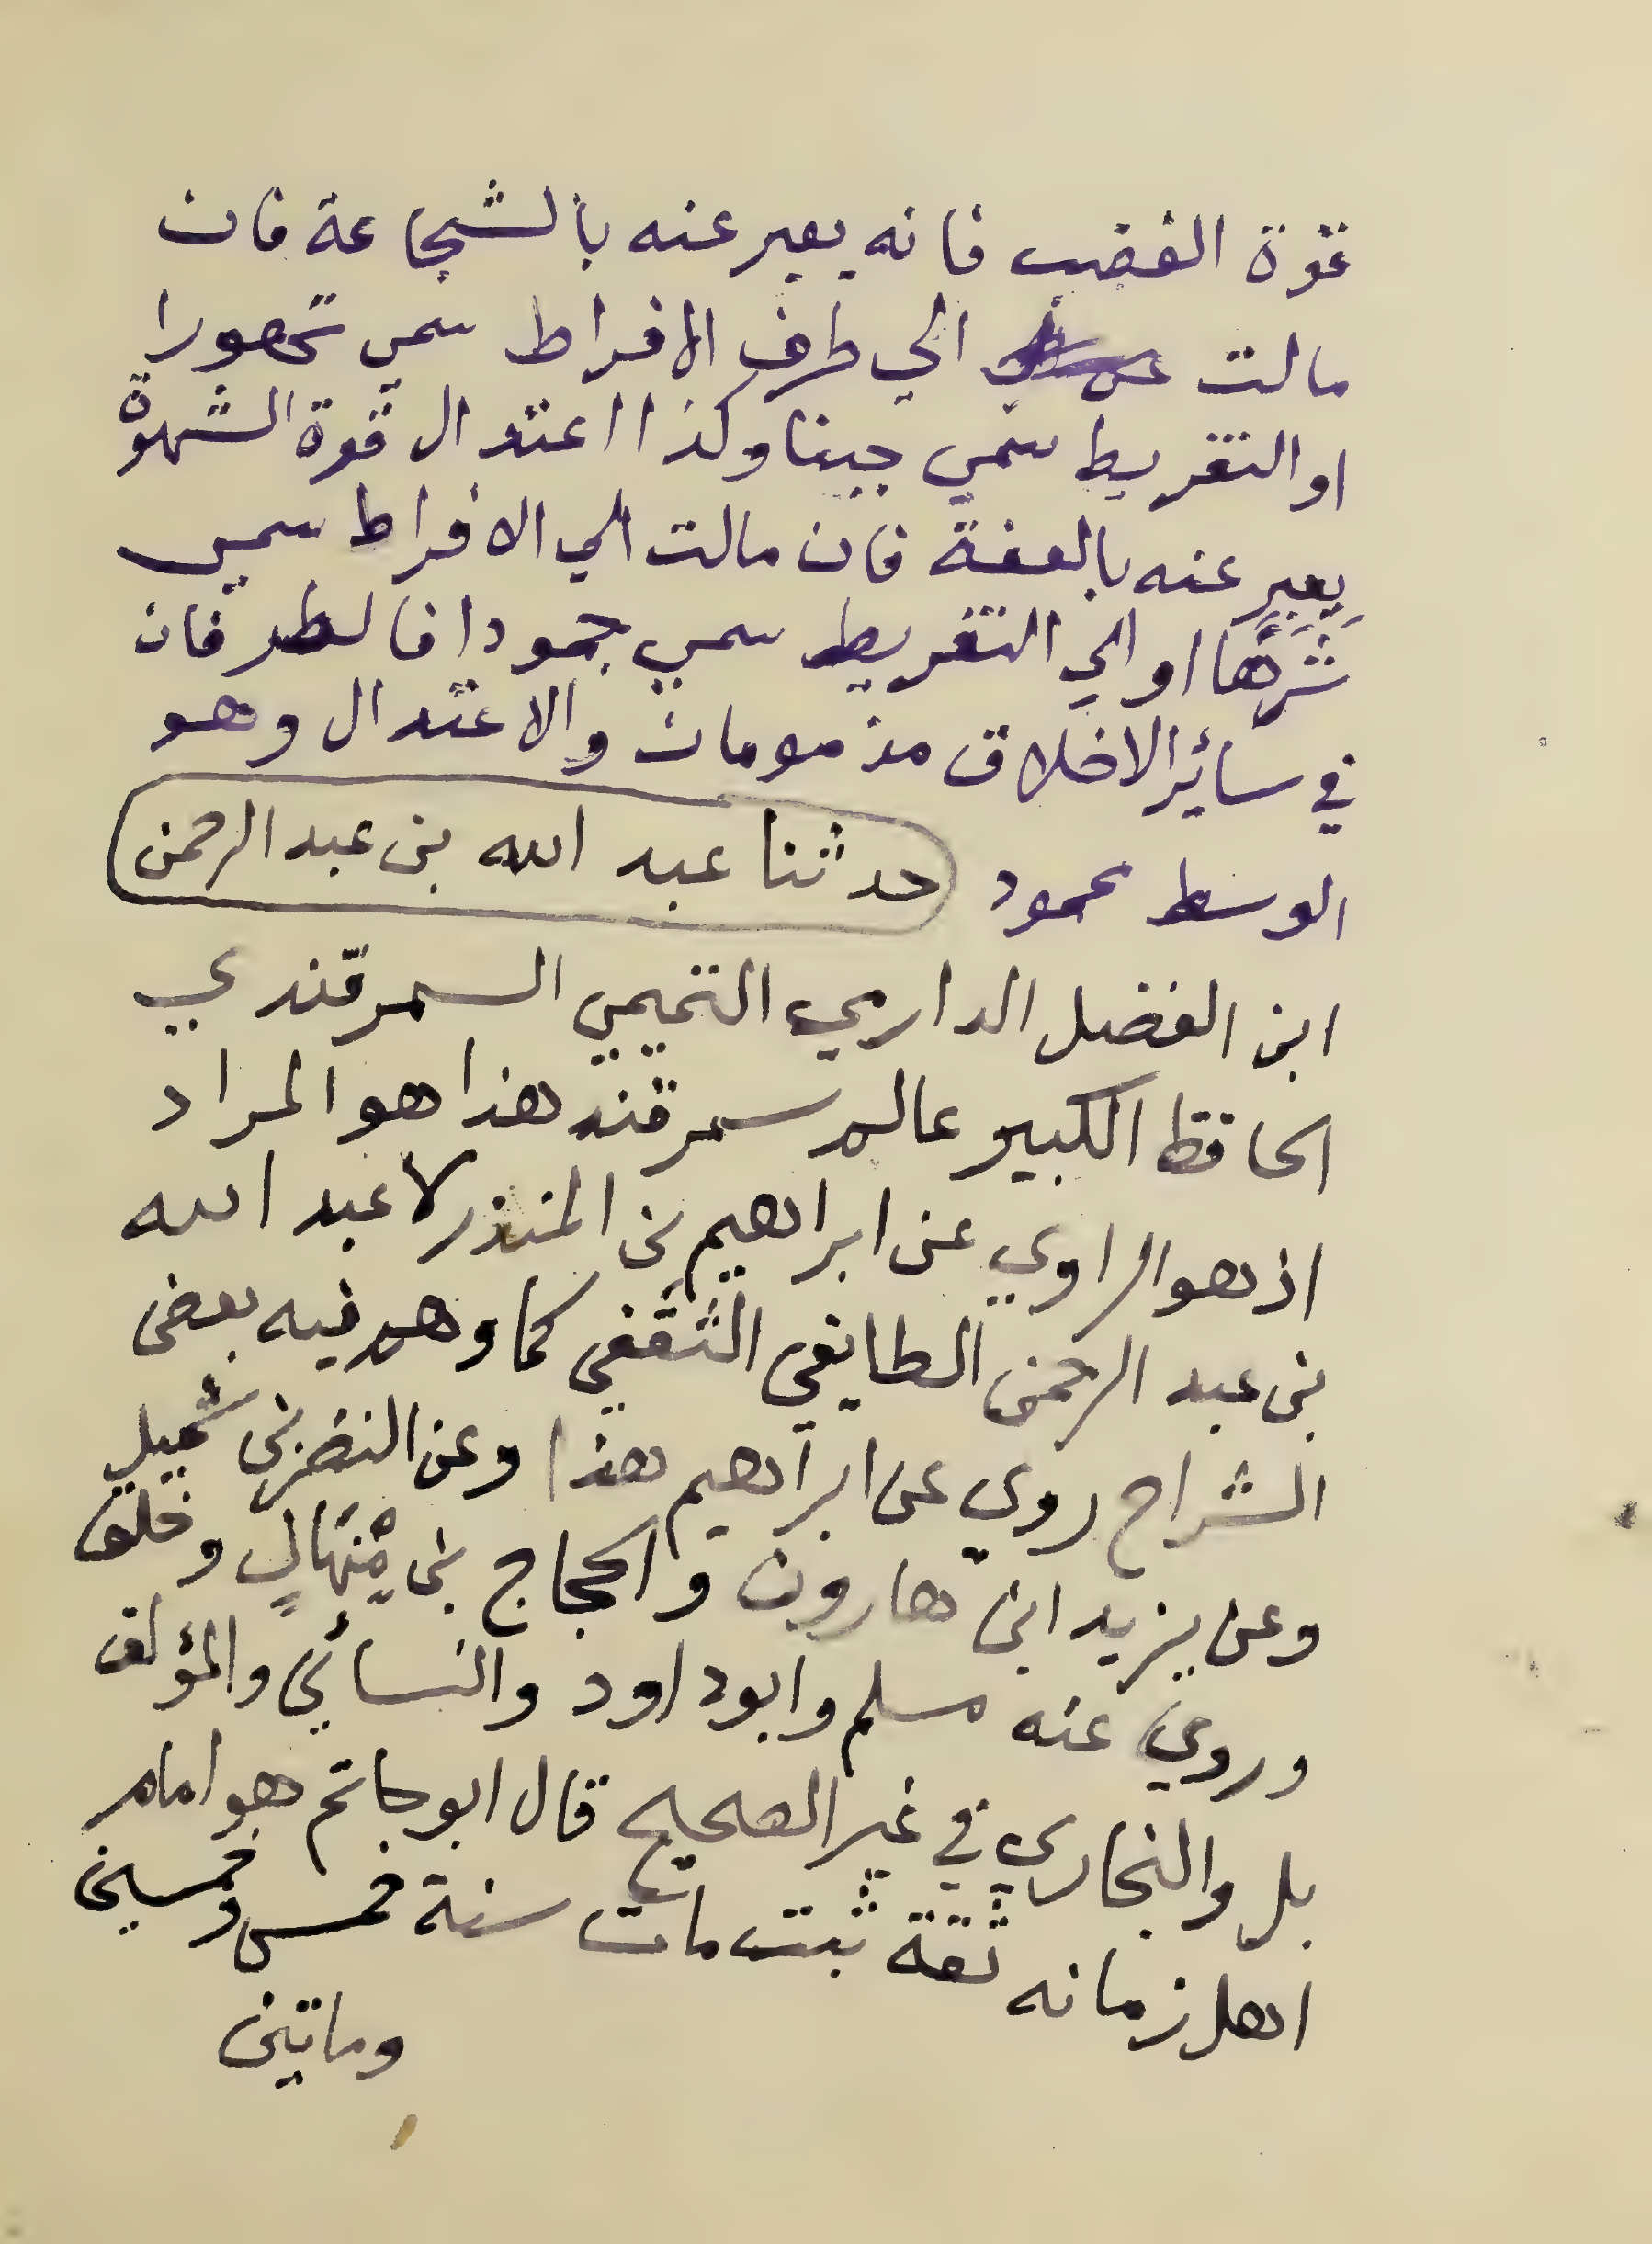 قوة الغضب فانه يعبر عنه بالشجاعة فان
مالت عن الي طرف الافراط سمي تهورا
او التفريط سمي جبنا وكذا اعتدال قوة الشهوة
يعبر عنه بالعفة فان مالت الي الافراط سمي
شَرَهًا او الي التفريط سمي جمودا فالطرفان
في سائر الاخلاق مذمومان والاعتدال وهو
الوسط محمود حدثنا عبد الله بن عبد الرحمن
ابن الفضل الدارمي التميمي السمرقندي
الحافظ الكبير عالم سمرقند هذا هو المراد
اذ هو الراوي عن ابراهيم بن المنذر لا عبد الله
بن عبد الرحمن الطايفي الثَقَفي كما وهم فيه بعض
الشراح روي عن ابراهيم هذا وعن النضر بن شميل
وعن يزيد ابن هارون والحجاج بن مِنْهَالٍ وخلق
وروي عنه مسلم وابو داود والنسائي والمؤلف
بل والبخاري في غير الصحيح قال ابو حاتم هو امام
اهل زمانه ثقة ثبت مات سنة خمس وخمسين
وماتين